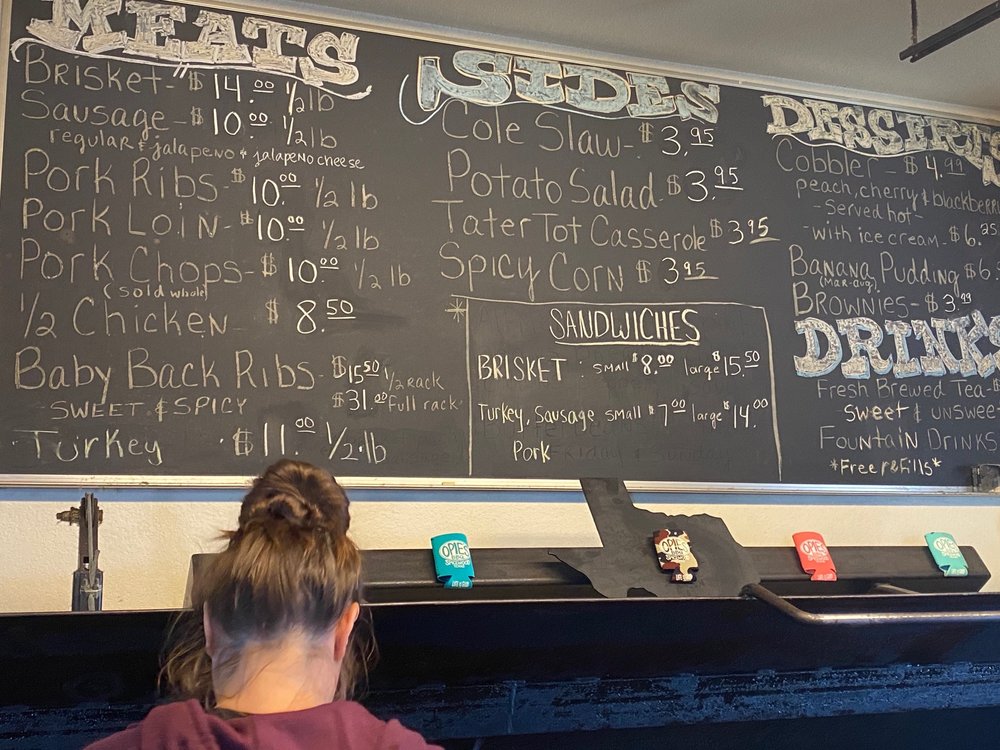 MEATS
Brisket - $14.00 1/2 lb
Sausage - $10.00 1/2 lb
regular & jalapeno & jalapeno cheese
Pork Ribs - $10.00 1/2 lb
Pork Loin - $10.00 1/2 lb
Pork Chops - $10.00 1/2 lb
(sold whole)
1/2 Chicken - $8.50
Baby Back Ribs - $15.50 1/2 rack
- SWEET & SPICY $31.00 Full rack
Turkey - $11.00 1/2 lb
SIDES
Cole Slaw - $3.95
Potato Salad $3.95
Tater Tot Casserole $3.95
Spicy Corn $3.95
* SANDWICHES
BRISKET : small $8.00 large $15.50
Turkey, Sausage small $7.00 large $14.00
Pork
DESSERT
Cobbler - $4.99
peach, cherry & blackberr
- Served hot -
- with ice cream - $6.25
Banana Pudding $6.
(mar-aug)
Brownies - $3.99
DRINKS
Fresh Brewed Tea - $
Sweet & unswee
Fountain Drinks
*Free refills*
OPIES
OPIES
OPIES
OPIES